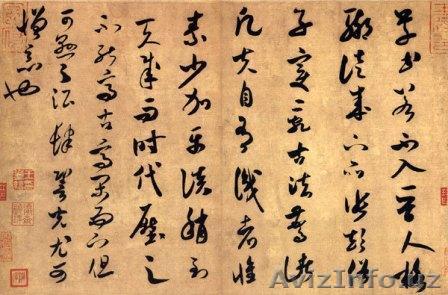 草書若不入晉人格
輒徒成下品張顛俗
子變亂古法驚諸
凡夫自有識者懷
素少加平淡稍到
天成而時代壓之
不能高古高閑而下但
可懸之酒肆䛒光尤可
憎惡也
AvizInfo.uz